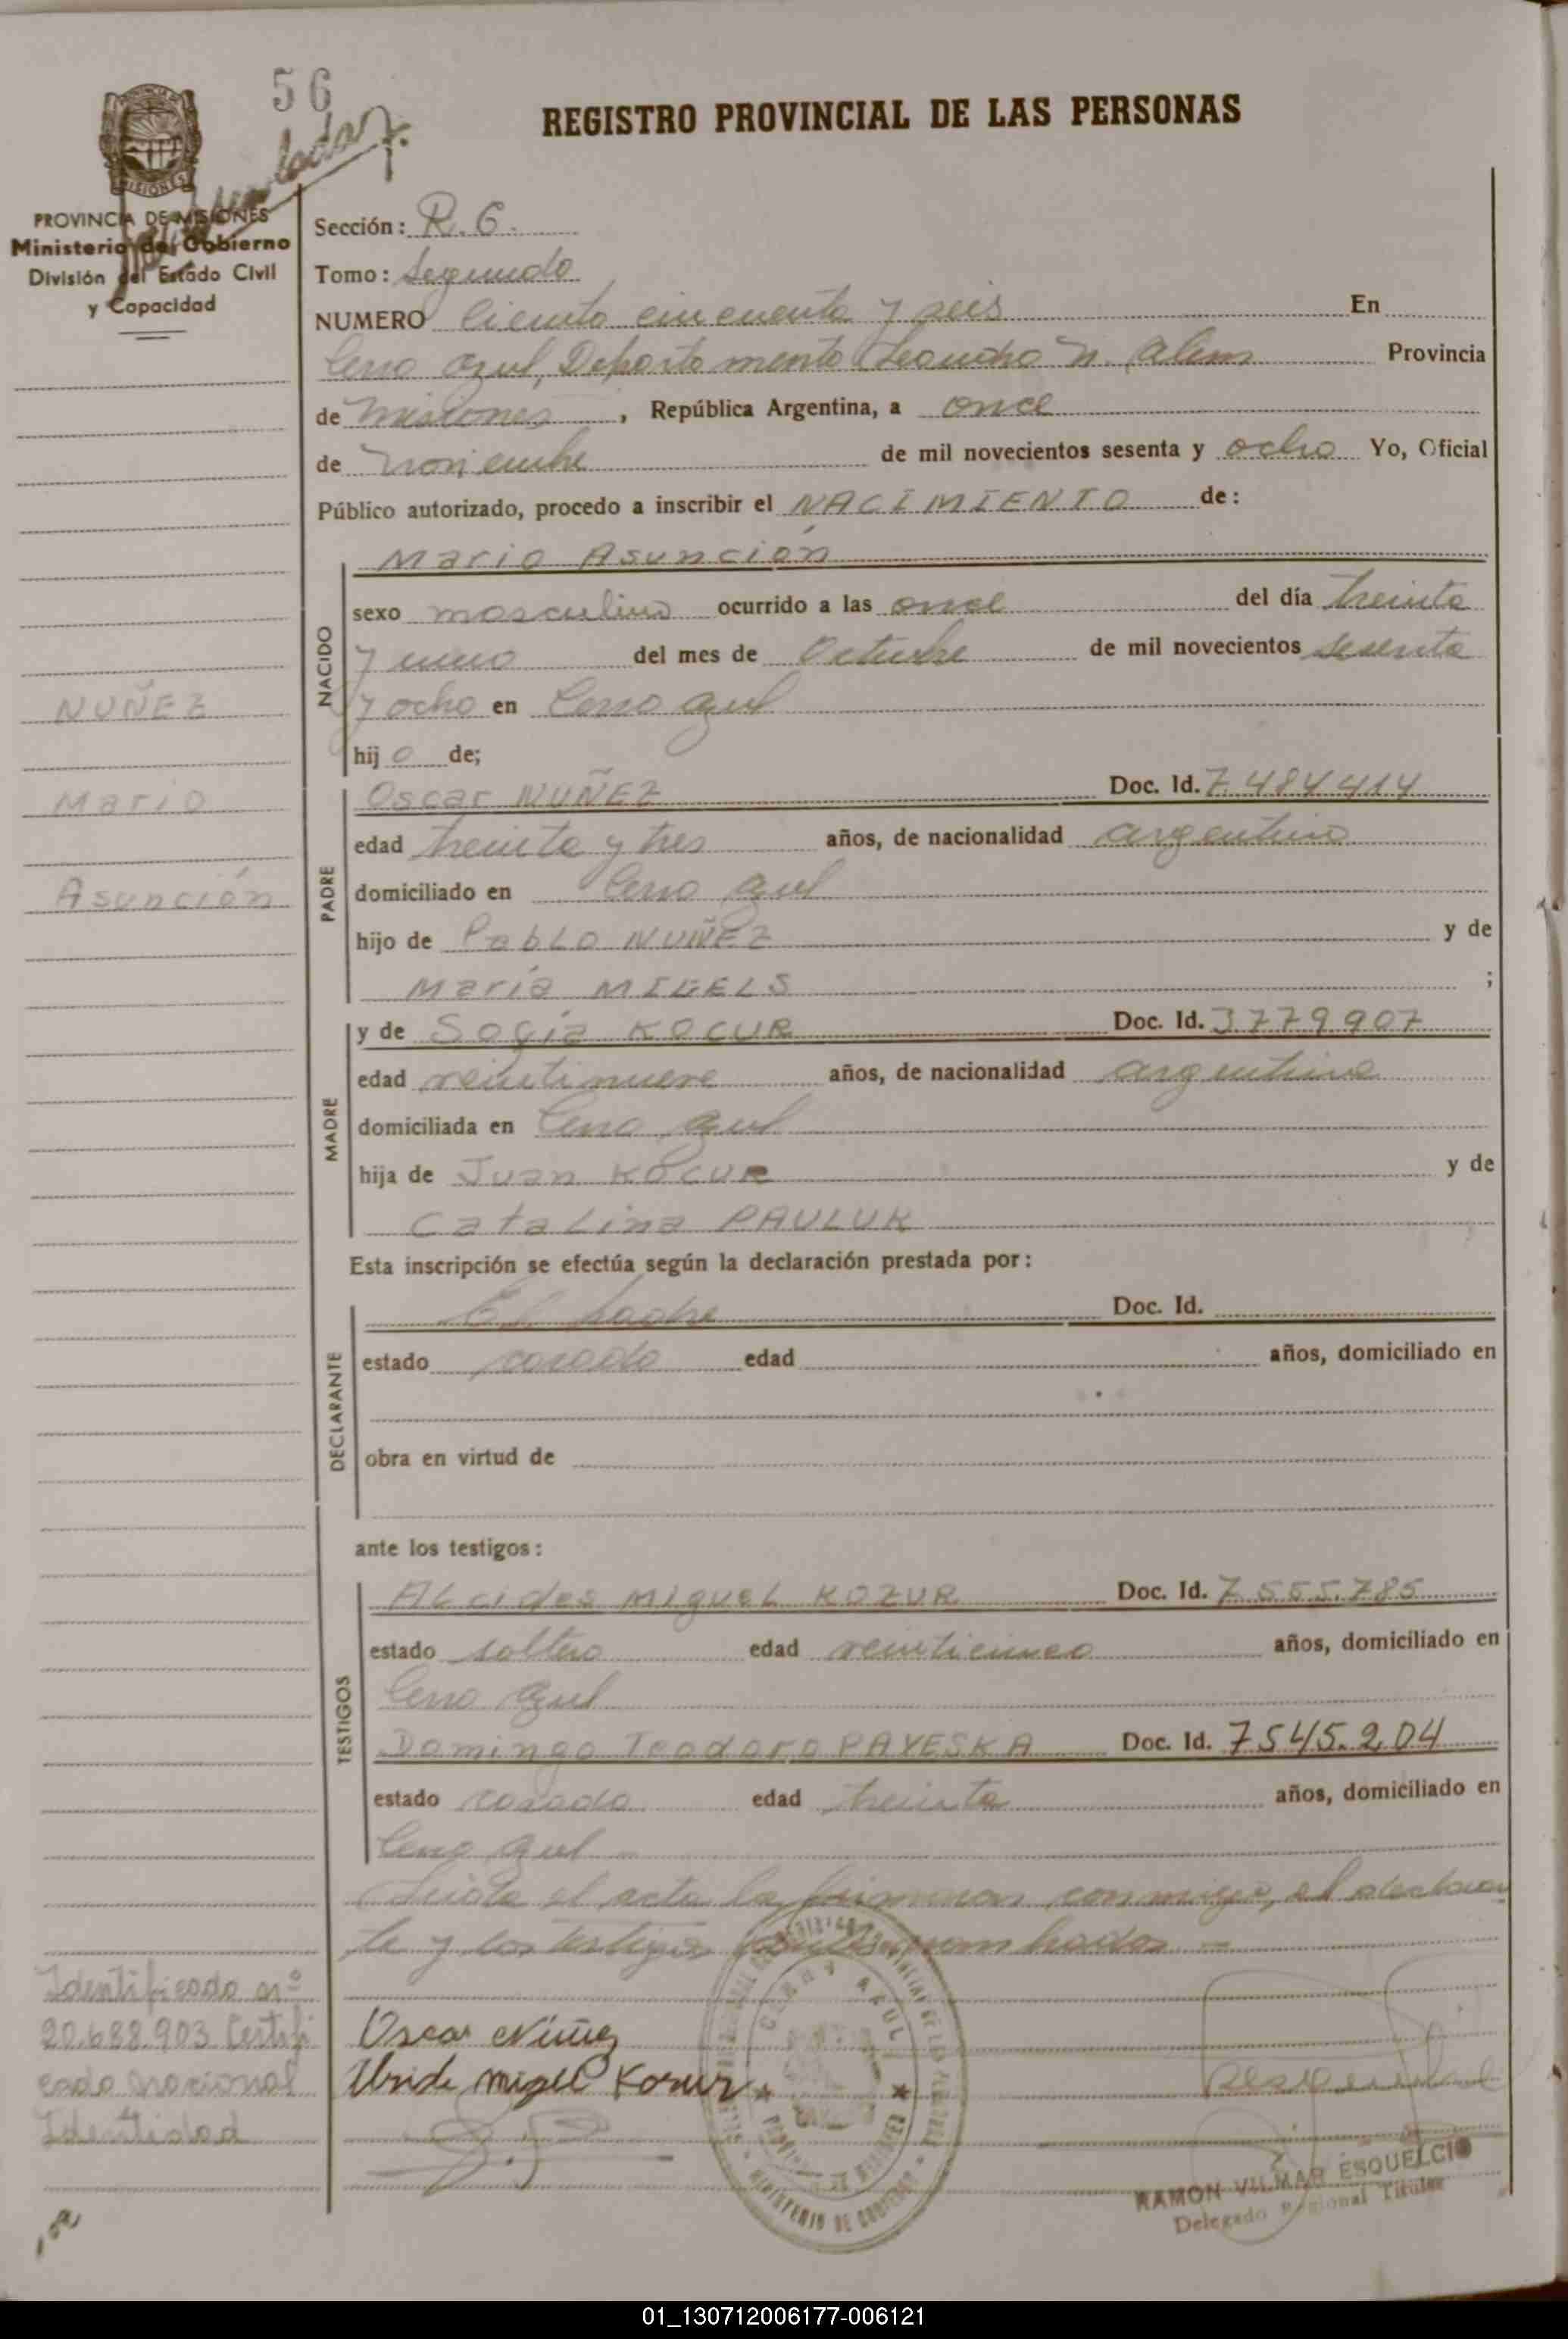 56
REGISTRO PROVINCIAL DE LAS PERSONAS
PROVINCIA DE MISIONES
Ministerio de Gobierno
División del Estado Civil
y Capacidad
Sección: R.C.
Tomo: Segundo
NUMERO Ciento cincuenta y seis En
Cerro Azul, Departamento Leandro N. Alem Provincia
de Misiones, República Argentina, a once
de Noviembre de mil novecientos sesenta y ocho Yo, Oficial
Público autorizado, procedo a inscribir el NACIMIENTO de:
Mario Asunción
NACIDO
sexo masculino ocurrido a las once del día treinta
y uno del mes de Octubre de mil novecientos sesenta
y ocho en Cerro Azul
hijo de;
NUÑEZ
Mario
Asunción
PADRE
Oscar NUÑEZ Doc. Id. 7.484.414
edad treinta y tres años, de nacionalidad argentino
domiciliado en Cerro Azul
hijo de Pablo NUÑEZ y de
María MIGELS ;
MADRE
y de Sofía KOCUR Doc. Id. 3779907
edad veintinueve años, de nacionalidad argentina
domiciliada en Cerro Azul
hija de Juan KOCUR y de
Catalina PAULUK
Esta inscripción se efectúa según la declaración prestada por:
DECLARANTE
El padre Doc. Id.
estado casado edad años, domiciliado en
obra en virtud de
ante los testigos:
TESTIGOS
Alcides Miguel KOZUR Doc. Id. 7.555.785
estado soltero edad veinticinco años, domiciliado en
Cerro Azul
Domingo Teodoro PAYESKA Doc. Id. 7545.204
estado casado edad treinta años, domiciliado en
Cerro Azul
Leída el acta la firman conmigo, el declaran
te y los testigos nombrados.-
Identificado nº
20.688.903 Certifi
cado Nacional
Identidad
Oscar Núñez
Miguel Kozur
CERRO AZUL
MINISTERIO DE GOBIERNO
RAMON VILMAR ESQUELCIO
Delegado Regional Titular
01_130712006177-006121